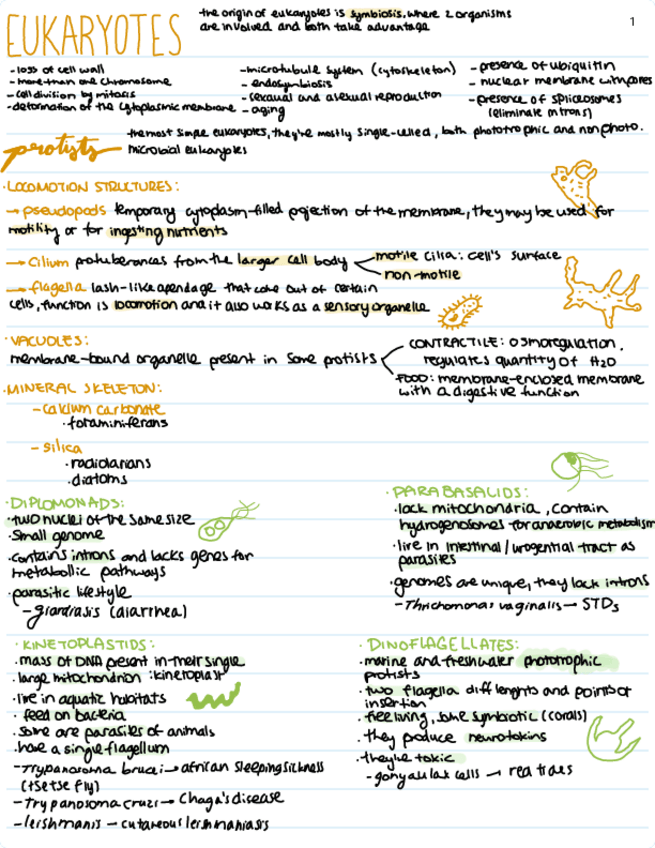 EUKARYOTES
the origin of eukaryotes is symbiosis, where 2 organisms
are involved and both take advantage
1
- loss of cell wall
- more than one chromosome
- cell division by mitosis
- deformation of the cytoplasmic membrane
- microtubule system (cytoskeleton)
- endosymbiosis
- sexual and asexual reproduction
- aging
- presence of ubiquitin
- nuclear membrane with pores
- presence of spliceosomes
(eliminate introns)
protists
the most simple eukaryotes, they're mostly single-celled, both phototrophic and nonphoto.
microbial eukaryotes
· LOCOMOTION STRUCTURES:
→ pseudopods temporary cytoplasm-filled projection of the membrane, they may be used for
motility or for ingesting nutrients
→ cilium protuberances from the larger cell body
motile cilia: cell's surface
non-motile
→ flagella lash-like apendage that come out of certain
cells, function is locomotion and it also works as a sensory organelle
· VACUOLES:
membrane-bound organelle present in some protists
CONTRACTILE: osmoregulation.
regulates quantity of H2O
FOOD: membrane-enclosed membrane
with a digestive function
· MINERAL SKELETON:
- calcium carbonate
· foraminiferans
- silica
· radiolarians
· diatoms
· DIPLOMONADS:
· two nuclei of the same size
· small genome
· contains introns and lacks genes for
metabollic pathways
· parasitic lifestyle
- giardiasis (diarrhea)
· PARABASALIDS:
· lack mitochondria, contain
hydrogenosomes for anaerobic metabolism
· live in intestinal/urogential tract as
parasites
· genomes are unique, they lack introns
- Thrichomonas vaginalis → STDs
· KINETOPLASTIDS:
· mass of DNA present in their single
· large mitochondrion : kinetoplast
· live in aquatic habitats
· feed on bacteria
· some are parasites of animals
· have a single flagellum
- Trypanosoma brucei → african sleeping sickness
(tsetse fly)
- Trypanosoma cruzi → Chaga's disease
- leishmanis - cutaneous leishmaniasis
· DINOFLAGELLATES:
· marine and freshwater phototrophic
protists
· two flagella diff lenghts and points of
insertion
· free living, some symbiotic (corals)
· they produce neurotoxins
· they're toxic
- gonyaulax cells → red tides